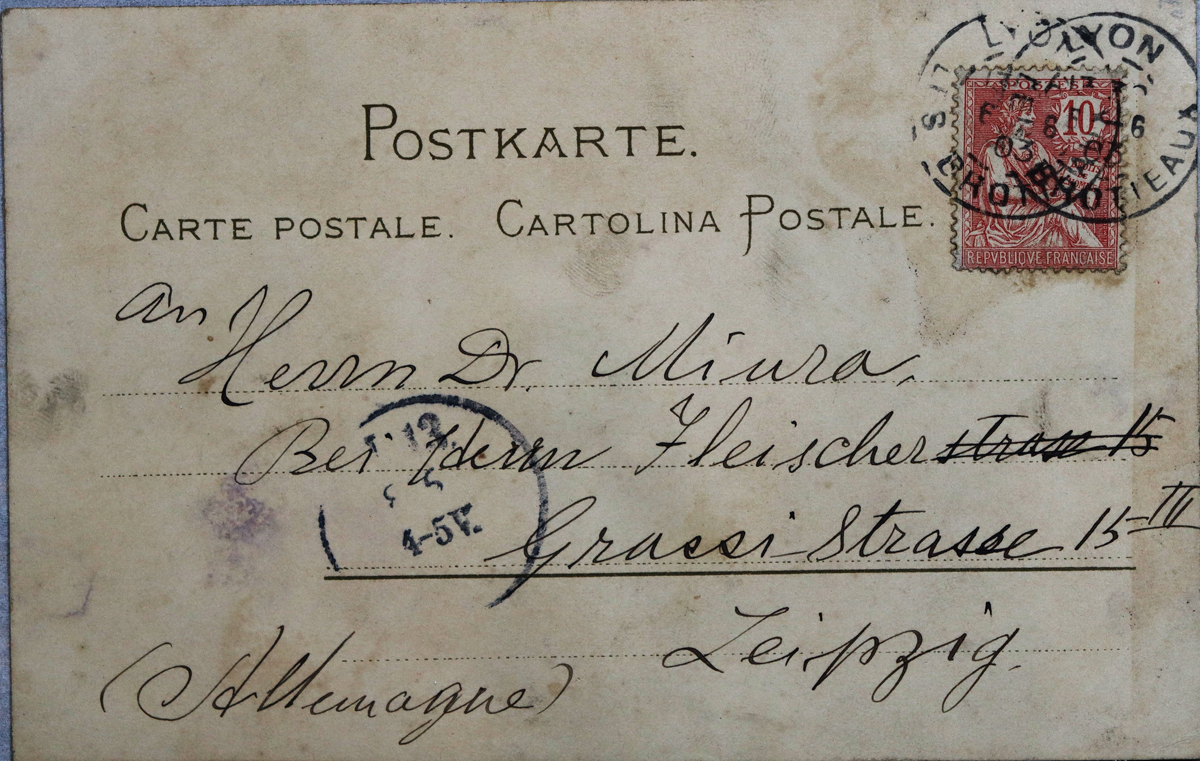 POSTKARTE.
CARTE POSTALE. CARTOLINA POSTALE.
LYON
LYON
10
03
BROTTEAUX
REPVBLIQVE FRANÇAISE
An
Herrn Dr. Miura.
Bei Herrn Fleischer strasse 15
Grassi Strasse 15 III
Leipzig.
(Allemagne)
4-5V.